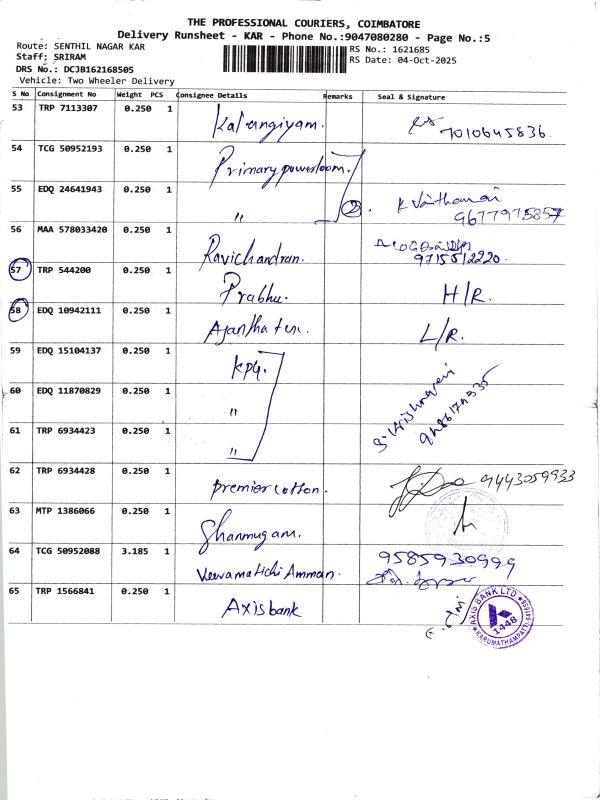 THE PROFESSIONAL COURIERS, COIMBATORE
Delivery Runsheet - KAR - Phone No.:9047080280 - Page No.:5
Route: SENTHIL NAGAR KAR
RS No.: 1621685
Staff: SRIRAM
RS Date: 04-Oct-2025
DRS No.: DCJB162168505
Vehicle: Two Wheeler Delivery
S No Consignment No Weight PCS Consignee Details Remarks Seal & Signature
53 TRP 7113307 0.250 1 Kalangiyam. 7010645836
54 TCG 50952193 0.250 1 Primary powerloom.
55 EDQ 24641943 0.250 1 " 2. 9677975857
56 MAA 578033420 0.250 1 Ravichandran. 9715512220
57 TRP 544200 0.250 1 Prabhu. H/R.
58 EDQ 10942111 0.250 1 L/R.
59 EDQ 15104137 0.250 1 KPG.
60 EDQ 11870829 0.250 1 "
61 TRP 6934423 0.250 1 "
62 TRP 6934428 0.250 1 premier cotton. 9443059933
63 MTP 1386066 0.250 1 Shanmugam.
64 TCG 50952088 3.185 1 Veeramatchi Amman. 9585930999
65 TRP 1566841 0.250 1 Axis bank
AXIS BANK LTD
1448